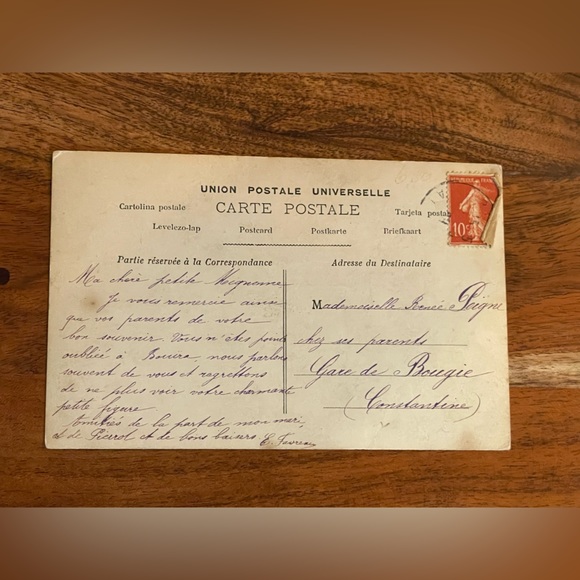 UNION POSTALE UNIVERSELLE
Cartolina postale CARTE POSTALE Tarjeta postal
Levelezo-lap Postcard Postkarte Briefkaart
Partie réservée à la Correspondance
Ma chère petite Mignonne
Je vous remercie ainsi
que vos parents de votre
bon souvenir. Vous n'êtes point
oubliée à Bouira, nous parlons
souvent de vous et regrettons
de ne plus voir votre charmante
petite figure.
Amitiés de la part de mon mari,
et de Pierrot et de bons baisers E.
Adresse du Destinataire
Mademoiselle Renée
chez ses parents
Gare de Bougie
(Constantine)
10